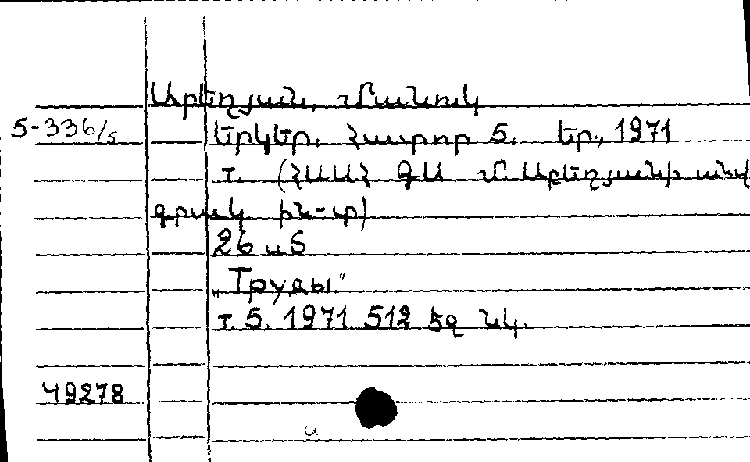 Աբեղյան, Մանուկ
5-336/5 Երկեր. Հատոր 5. Եր., 1971
т. (ՀՍՍՀ ԳԱ Մ. Աբեղյանի անվ
գրակ ին-տ)
26 սմ
„Труды"
т. 5. 1971 512 էջ նկ.
49278